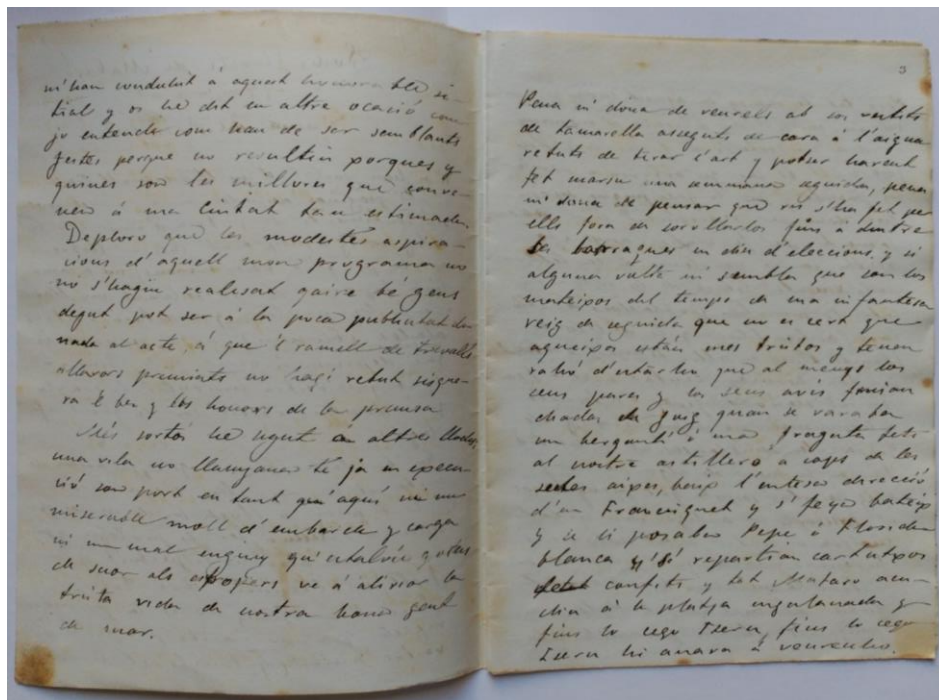 m' han conduhit á aquest honorable si-
tial y os he dit en altre ocasió com
jo entench com han de ser semblants
festes perque no resultin porques y
quines son les millores que conve-
nen á ma Ciutat tan estimada.
Deploro que les modestes aspira-
cions d' aquell mon programa no
s' hagin realisat gaire be gens
degut pot ser á la poca publicitat do-
nada al acte, á que 'l ramell de travalls
allavors premiats no hagi rebut sisque-
ra 'l bes y los honors de la premsa
Més sortós he sigut en altres
una vila no llunyana té ja en execu-
ció son port en tant qu' aquí ni un
miserable moll d' embarch y carga
ni un mal enginy qu' estalvie gotes
de suor als ve á aliviar la
trista vida de nostra bona gent
de mar.
3
Pena m' dona de veurels ab sos vestits
de tamarella asseguts de cara á l' aigua
retuts de tirar l' art y potser havent
fet una semmana seguida, pena
m' dona de pensar que res s' ha fet per
ells fora de fins á dintre
les barraques un dia d' eleccions, y si
alguna volta m' sembla que son los
mateixos del temps de ma infantesa
veig de seguida que no es cert que
aqueixos están mes tristos y tenen
rahó d' estarho que al menys los
seus pares y los seus avis tenian
diadas de goig quan se varaba
un bergantí ó una fragata fets
al nostre astillero á cops de les
seues aixes, baix l' entesa direcció
d' en y s' feya bateig
y se li posaba Pepe ó Flor de
blanca y s' hi repartian cartutxos
confits y tot Mataró acu-
dia á la platja engalanada y
fins lo cego fins lo cego
hi anava á veurecho.